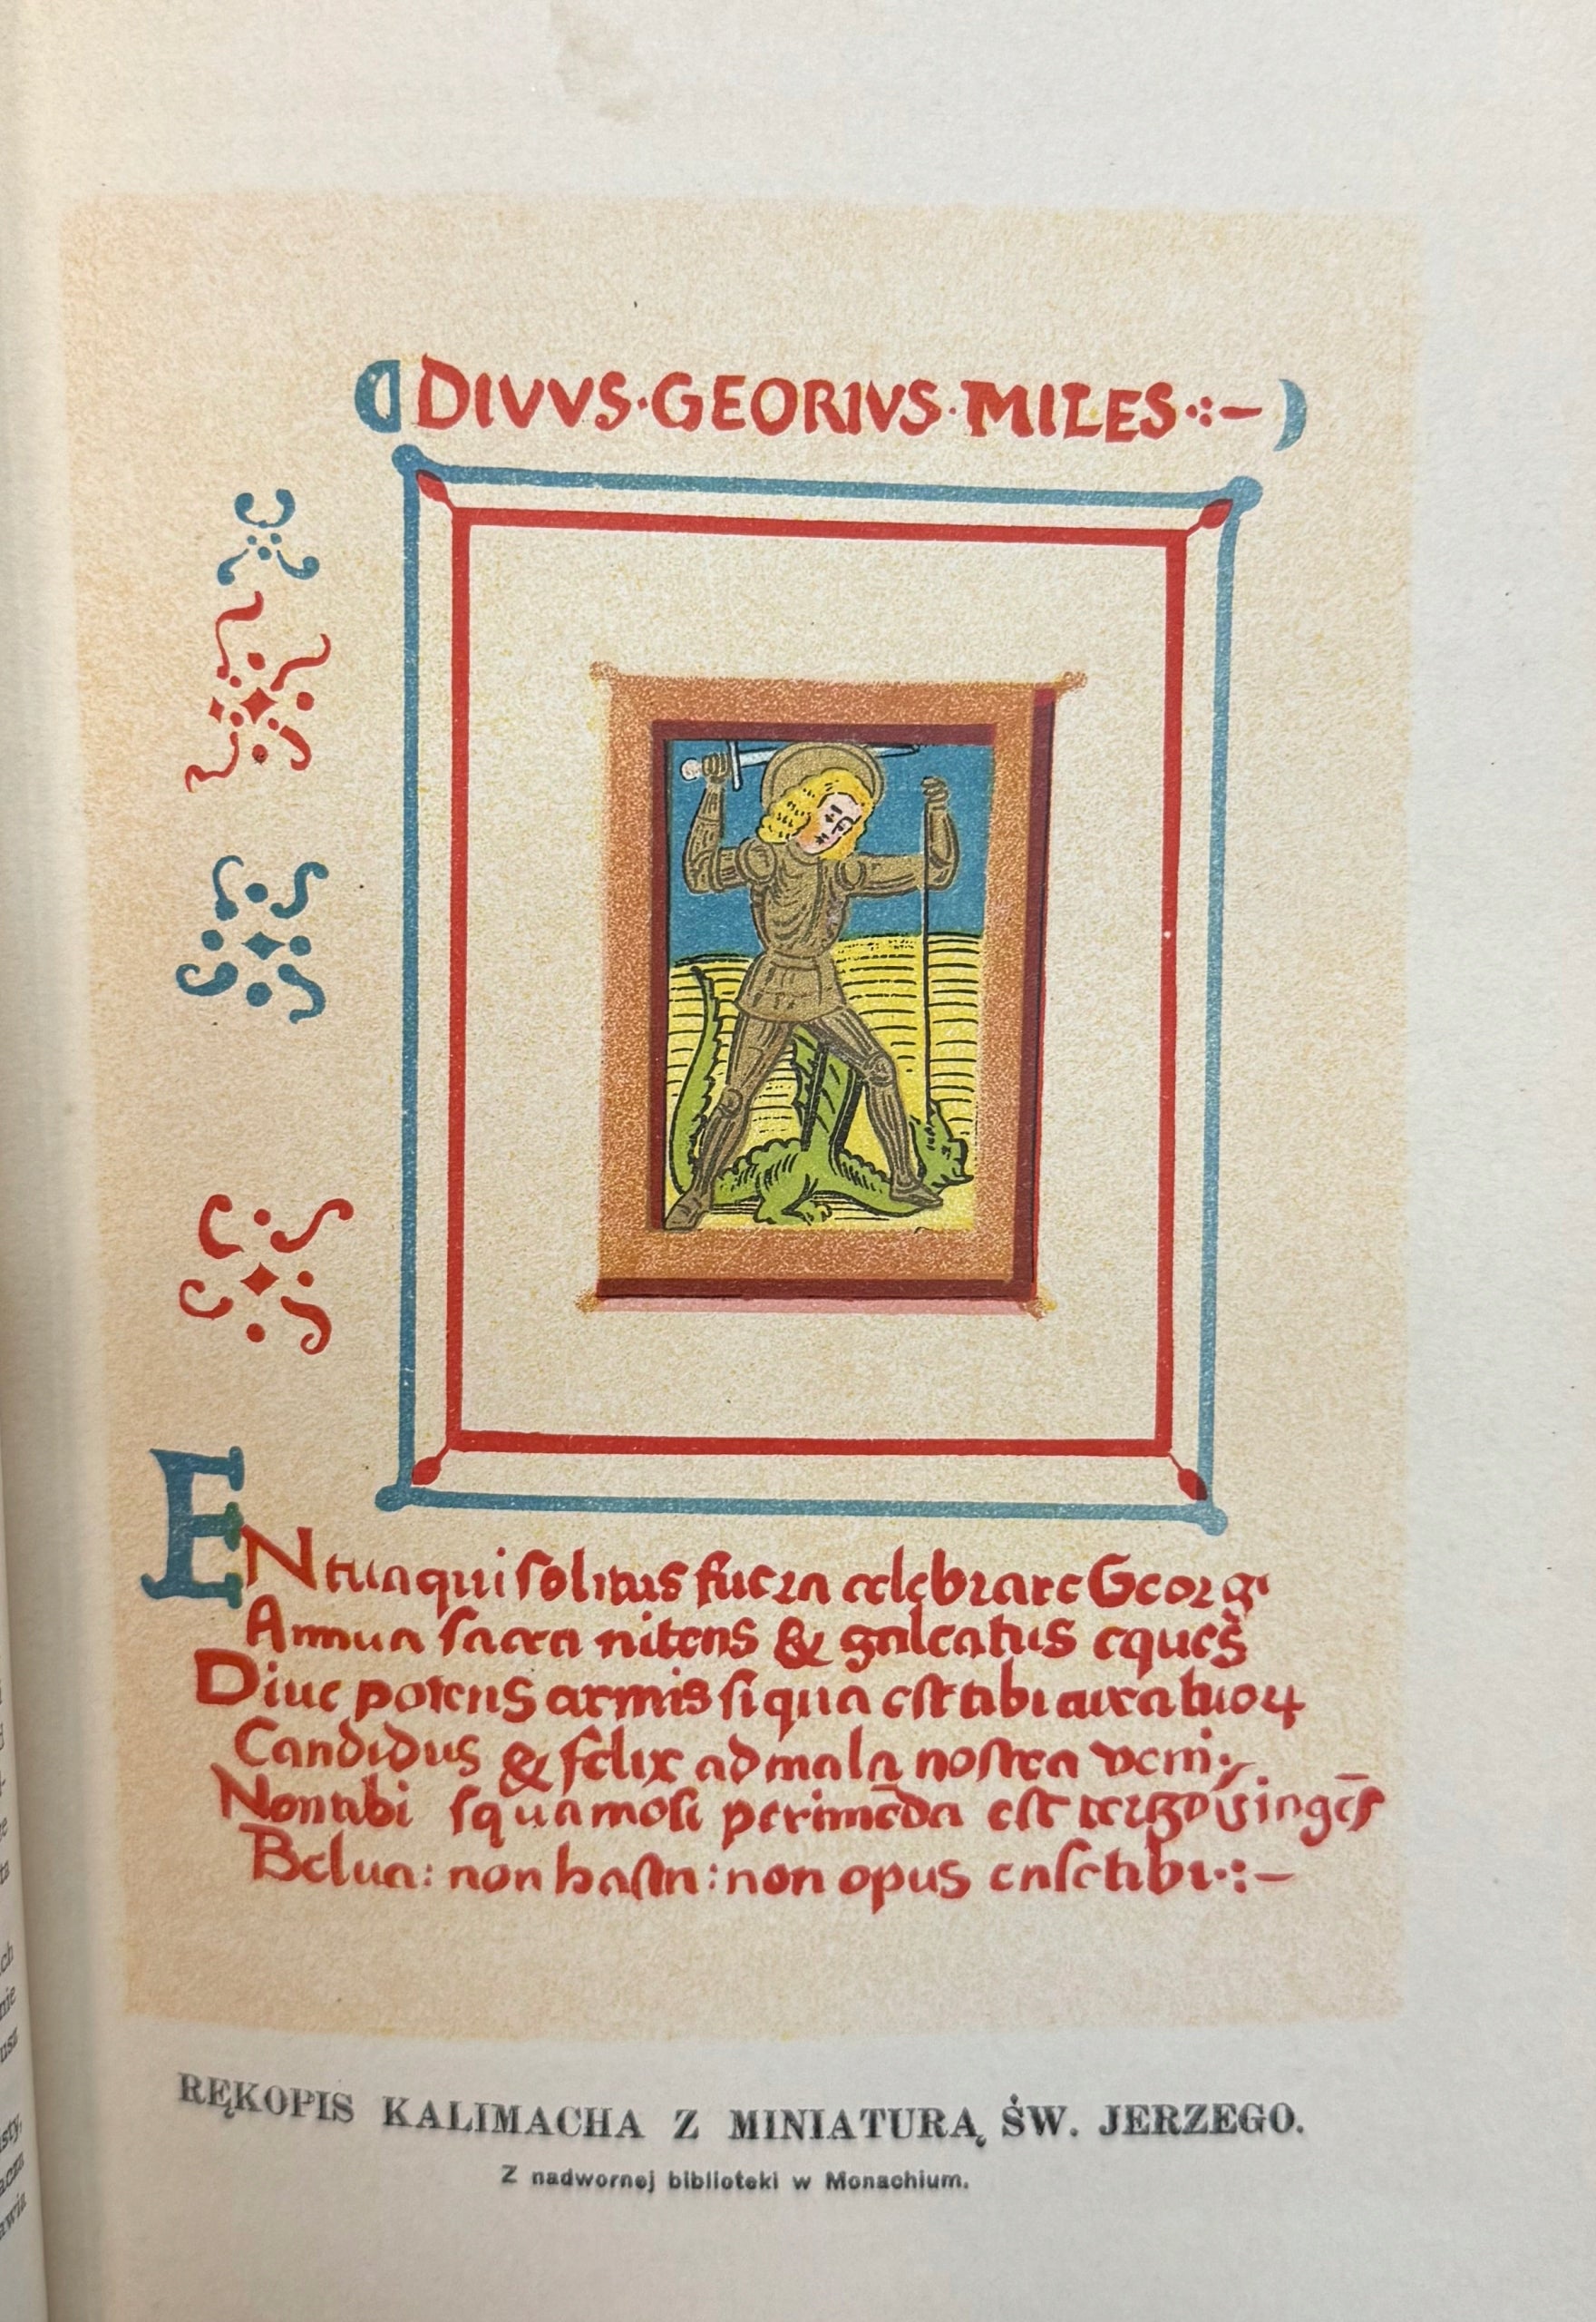 DIVVS·GEORIVS·MILES·:–
EN tua qui solitus fuera celebrare Georgi
Annua sacra nitens & galeatus eques
Diue potens armis si qua est tibi cura tuoꝝ
Candidus & felix ad mala nostra veni:
Non tibi squamosi perimēda est tergo īgēs
Belua: non hasta: non opus ense tibi·:–
RĘKOPIS KALIMACHA Z MINIATURĄ ŚW. JERZEGO.
Z nadwornej biblioteki w Monachium.